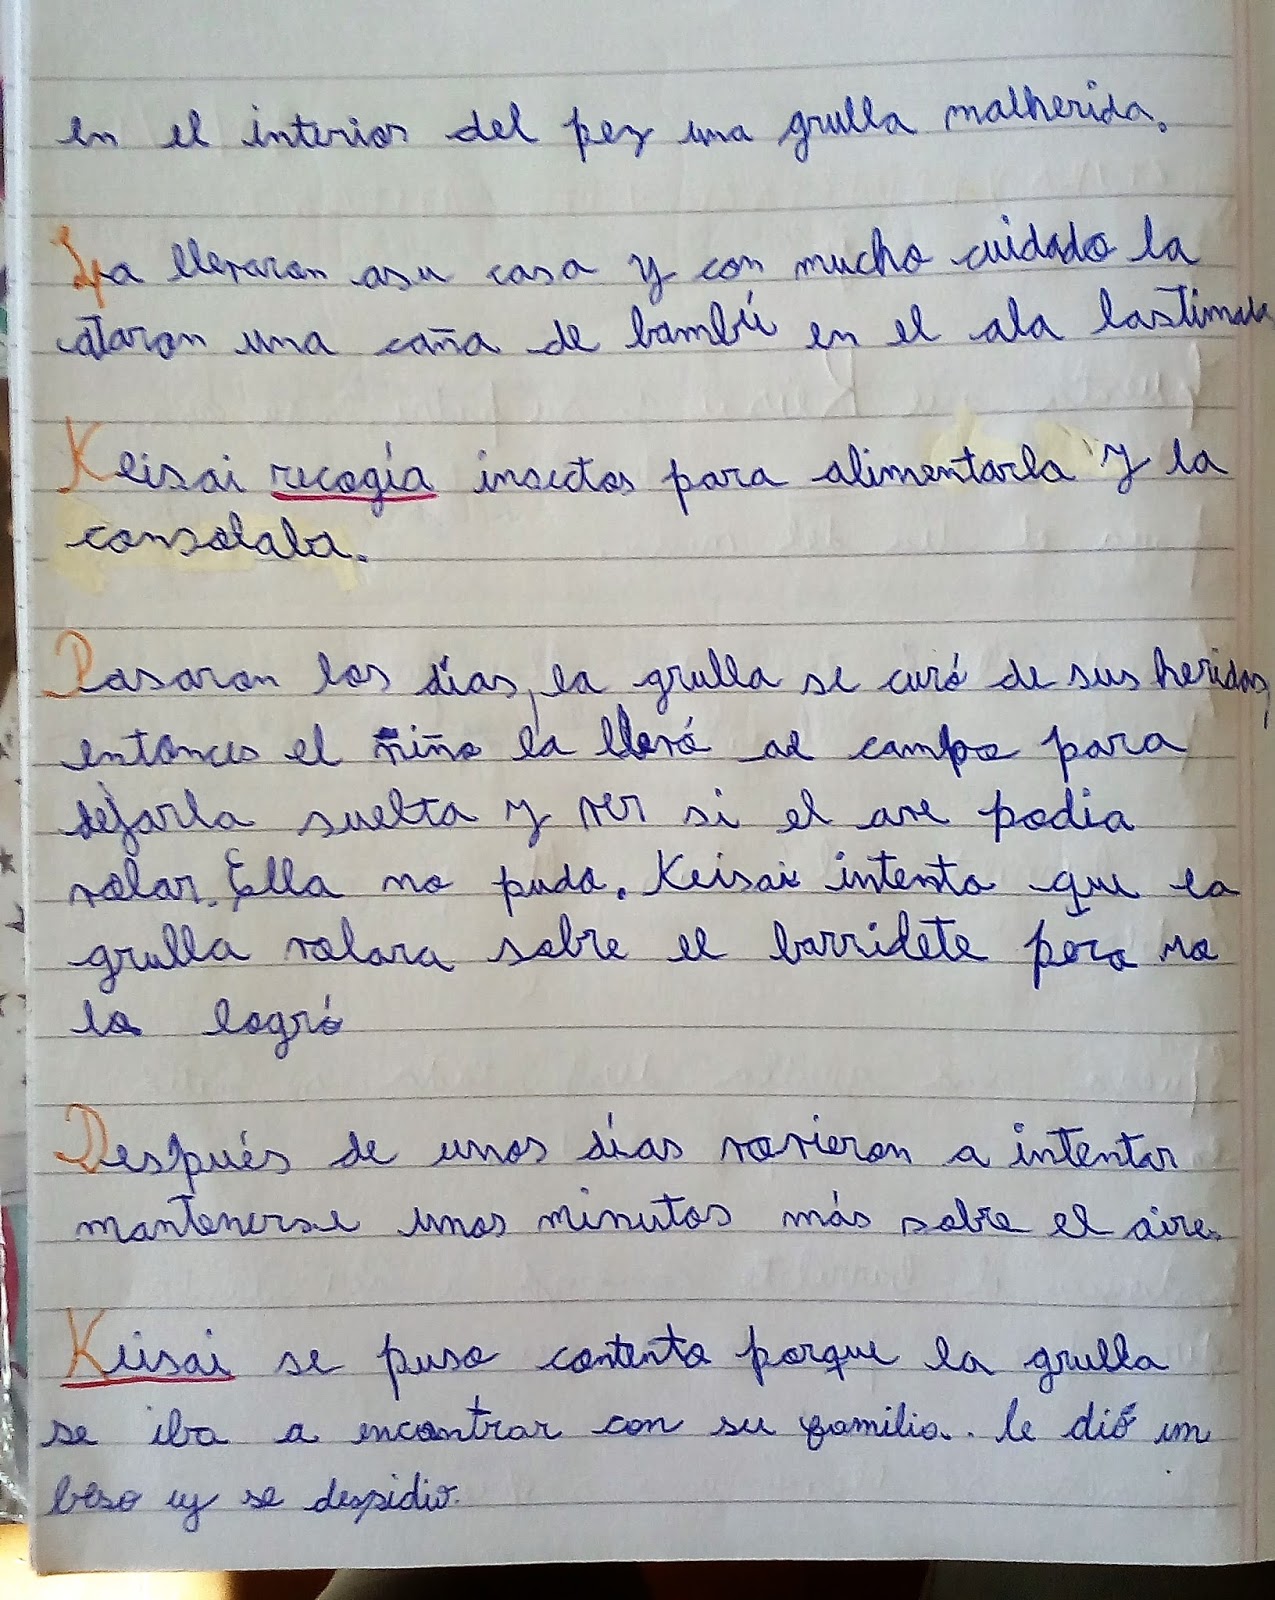 en el interior del pez una grulla malherida.
La llevaron asu casa y con mucho cuidado la
ataron una caña de bambú en el ala lastimada
Keisai recogía insectos para alimentarla y la
consolaba.
Pasaron los días, la grulla se curó de sus heridas,
entonces el niño la llevó al campo para
dejarla suelta y ver si el ave podia
volar. Ella no pudo. Keisai intento que la
grulla volara sobre el barridete pero no
lo logró
Después de unos días vovieron a intentar
mantenerse unos minutos más sobre el aire.
Keisai se puso contento porque la grulla
se iba a encontrar con su familia. le dió un
beso y se despidio.